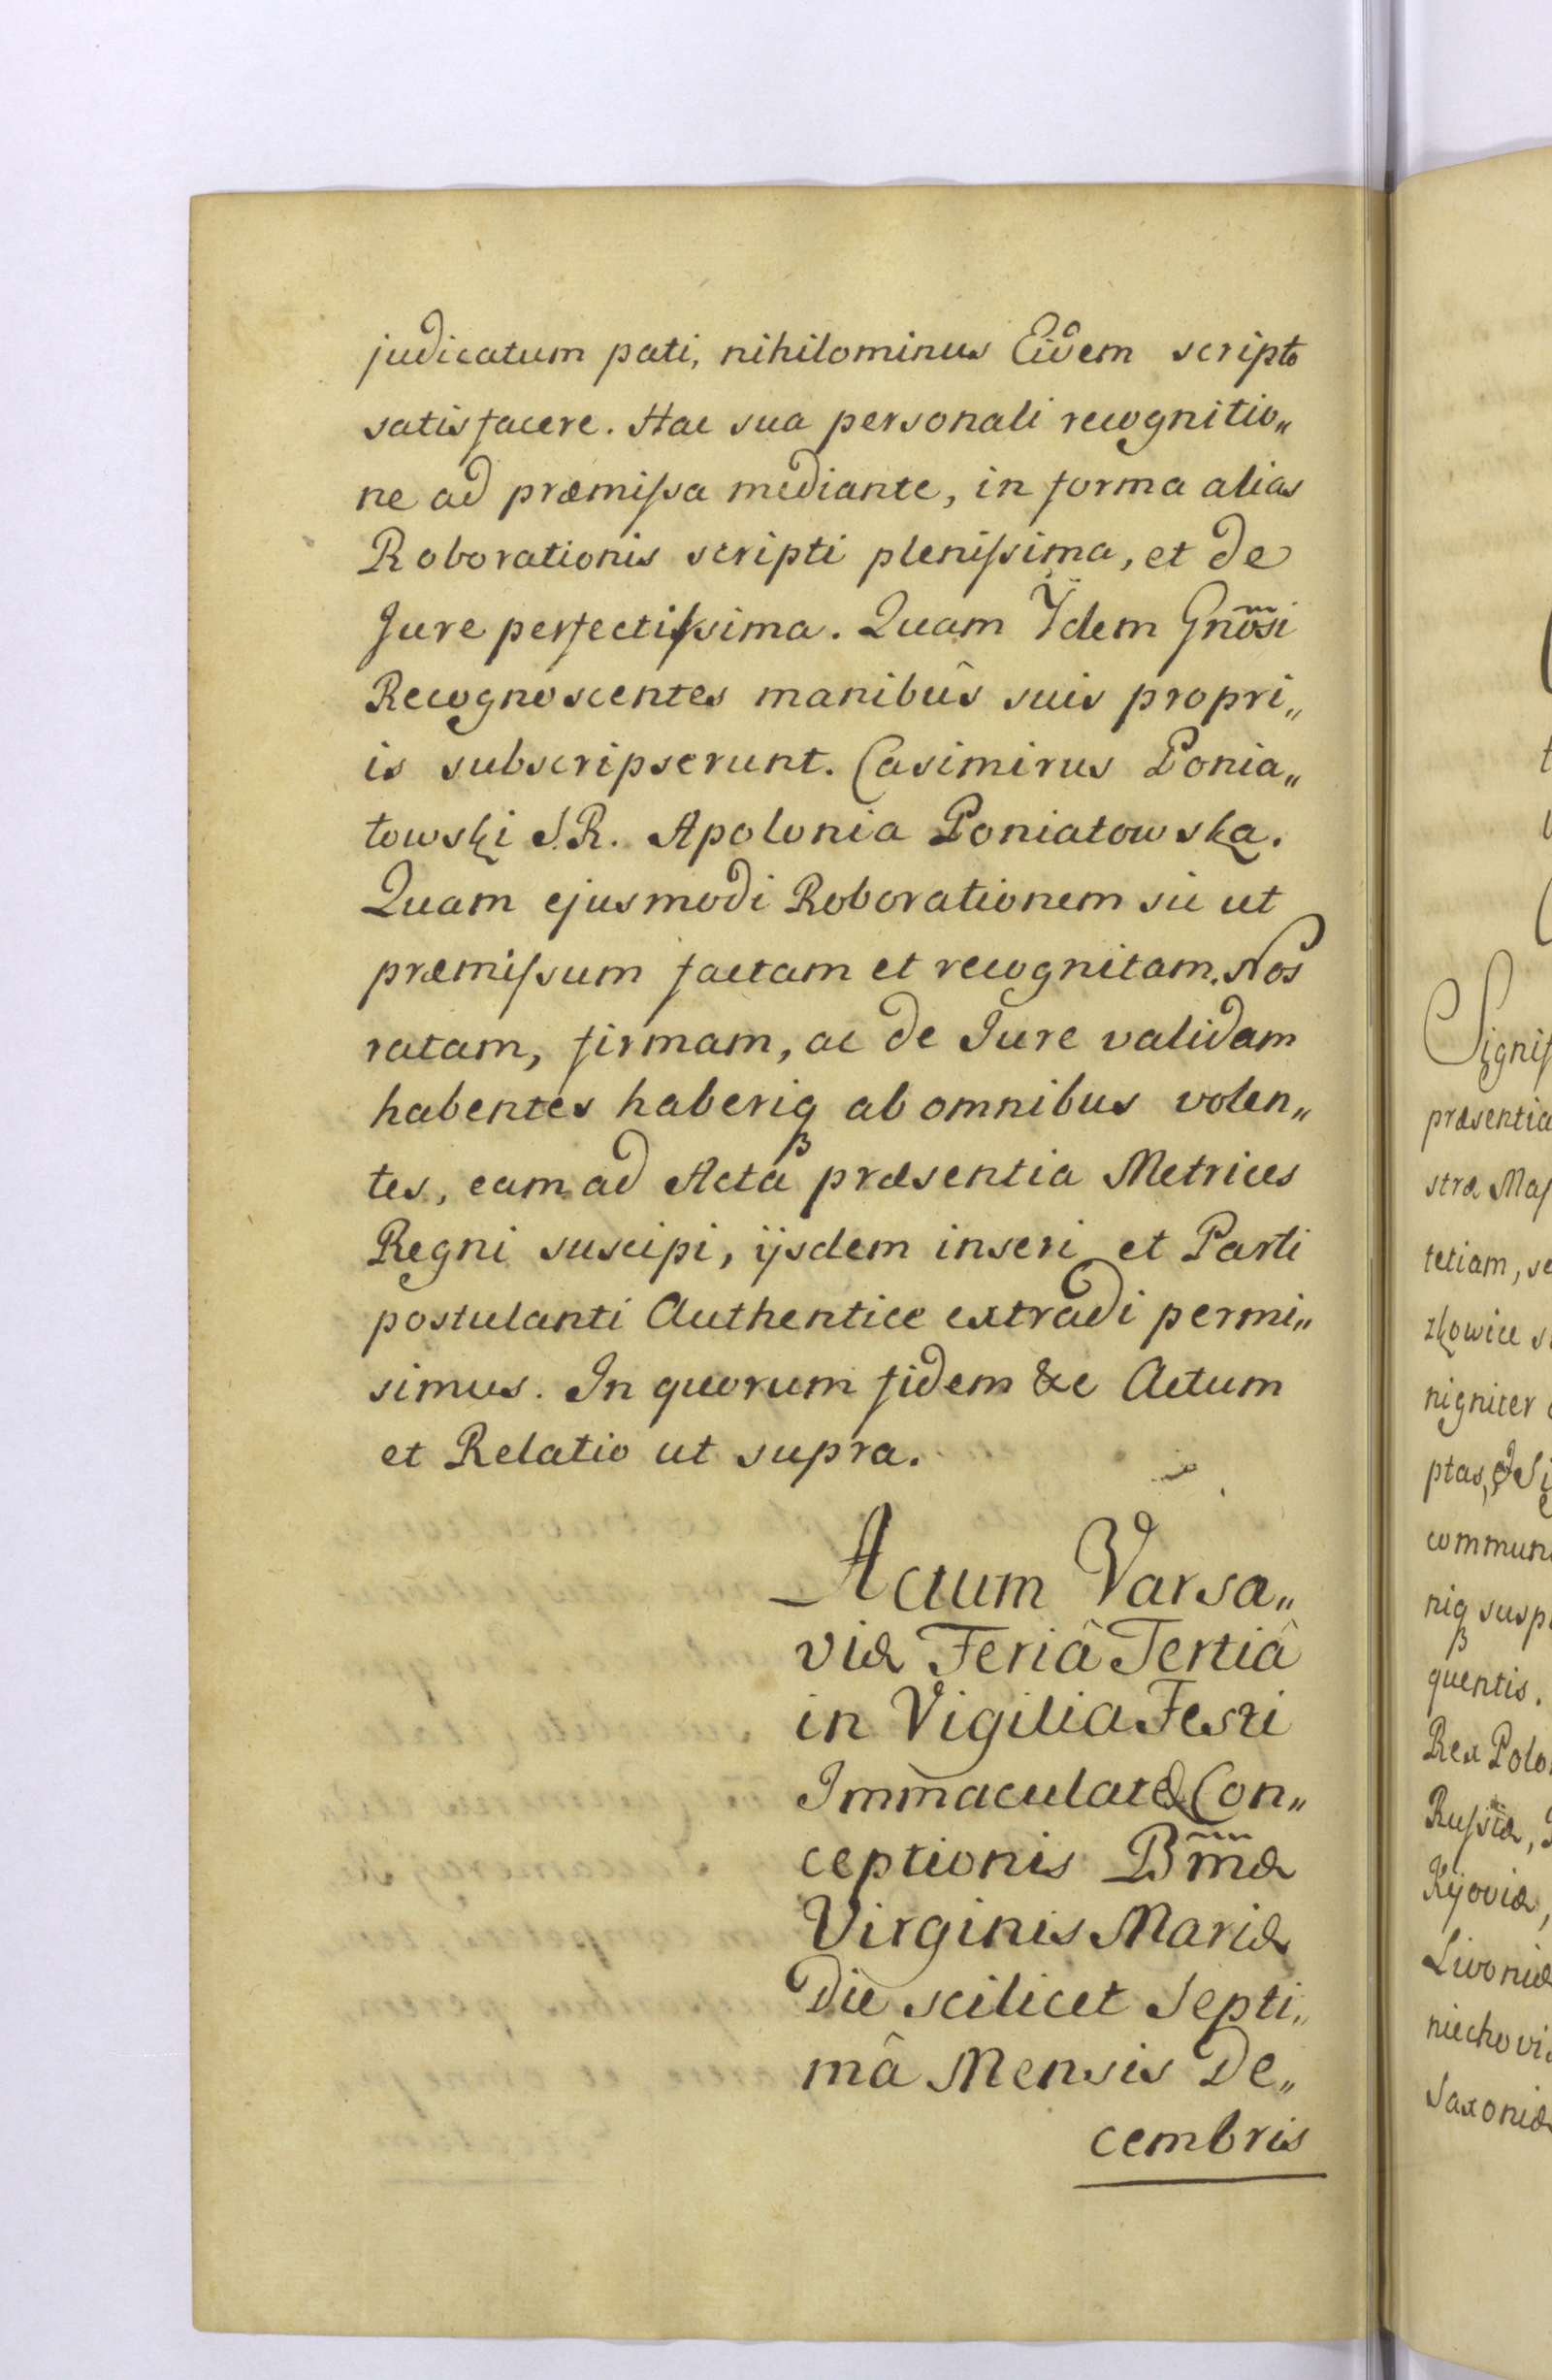 judicatum pati, nihilominus Eidem scripto
satisfacere. Hac sua personali recognitio„
ne ad præmissa mediante, in forma alias
Roborationis scripti plenissima, et de
Jure perfectissima. Quam Ydem Gnosi
Recognoscentes manibûs suis propri„
is subscripserunt. Casimirus Ponia„
towski S.R. Apolonia Poniatowska.
Quam ejusmodi Roborationem sic ut
præmissum factam et recognitam. Nos
ratam, firmam, ac de Jure validam
habentes haberiq ab omnibus volen„
tes, eam ad Acta præsentia Metrices
Regni suscipi, ijsdem inseri et Parti
postulanti Authentice extradi permi„
simus. In quorum fidem &c Actum
et Relatio ut supra.
Actum Varsa„
viæ Feriâ Tertiâ
in Vigilia Festi
Immaculatæ Con„
ceptionis Bmæ
Virginis Mariæ
Die scilicet Septi„
mâ Mensis De„
cembris
Signif
præsentia
stræ Maj
tetiam, se
zkowice s
nigniter
ptas, & Si
commun
niq susp
quentis.
Rex Polo
Russiæ,
Kijoviæ,
Livoniæ
niechovi
Saxoniæ